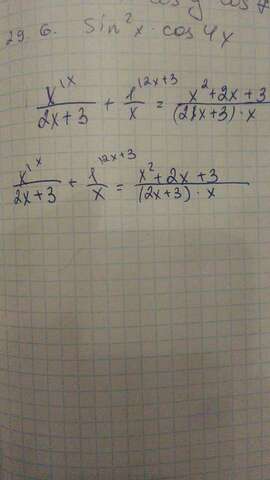 29. 6. Sin²x · cos 4x
x^{1x}/(2x+3) + 1^{12x+3}/x = (x²+2x+3)/((2x+3) · x)
x^{1x}/(2x+3) + 1^{12x+3}/x = (x²+2x+3)/((2x+3) · x)